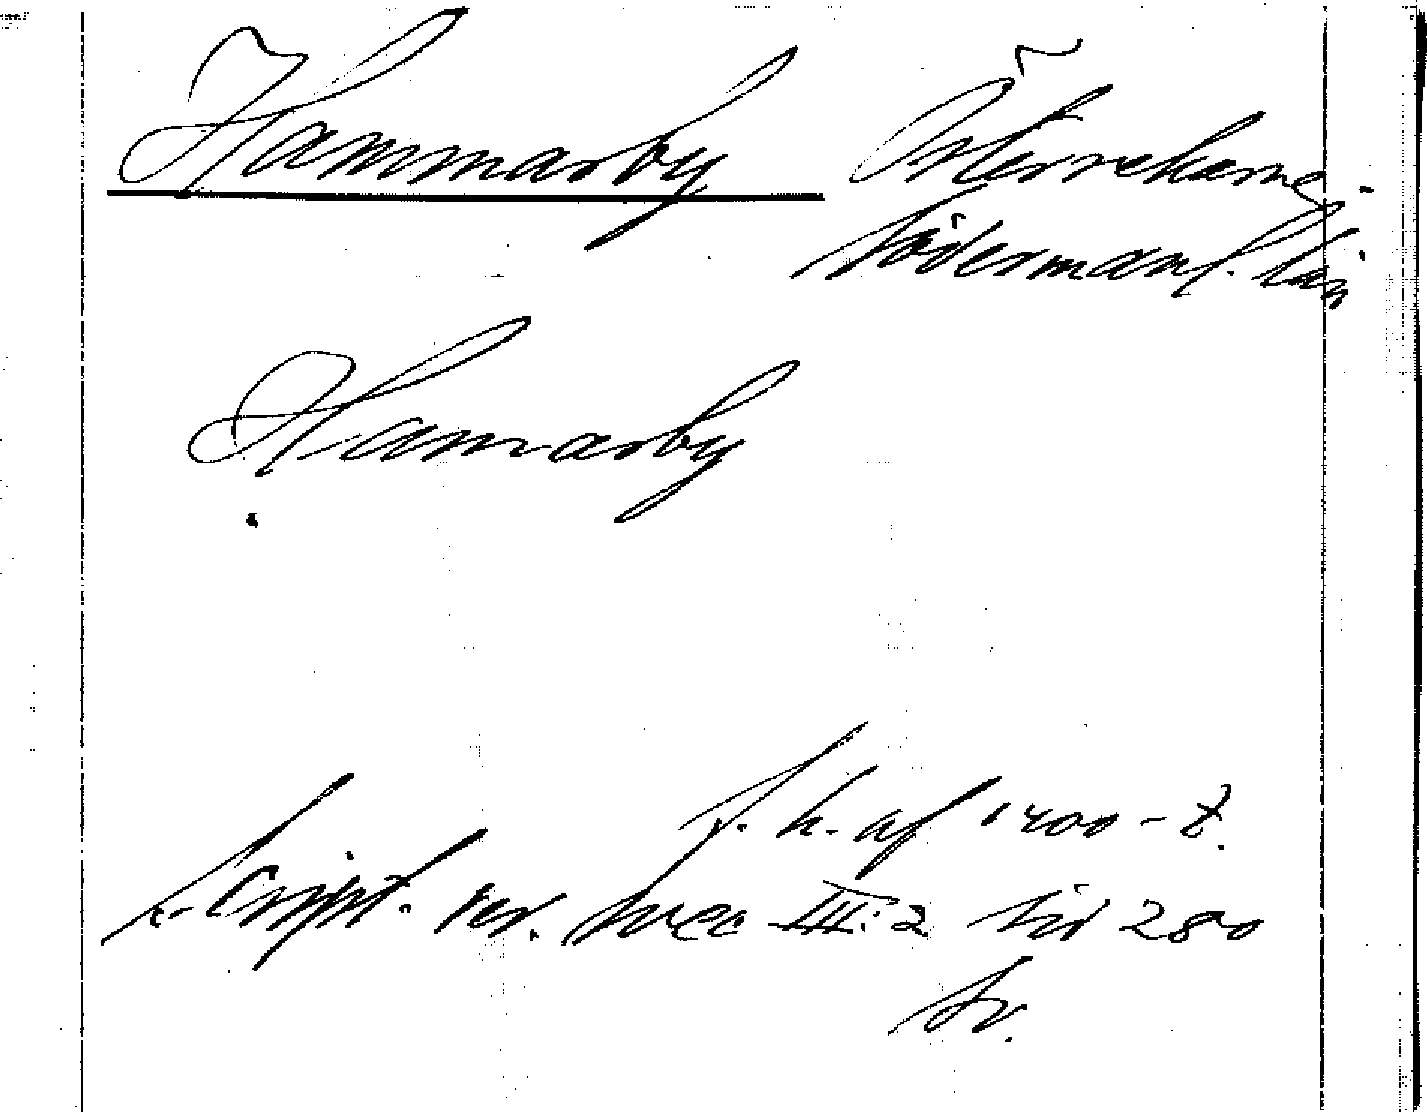 Hammarby Österrekarne
Södermanl. län
Hamarby
s. h. af 1400-t.
s. Script. rer. svec III:2 sid 280
sv.